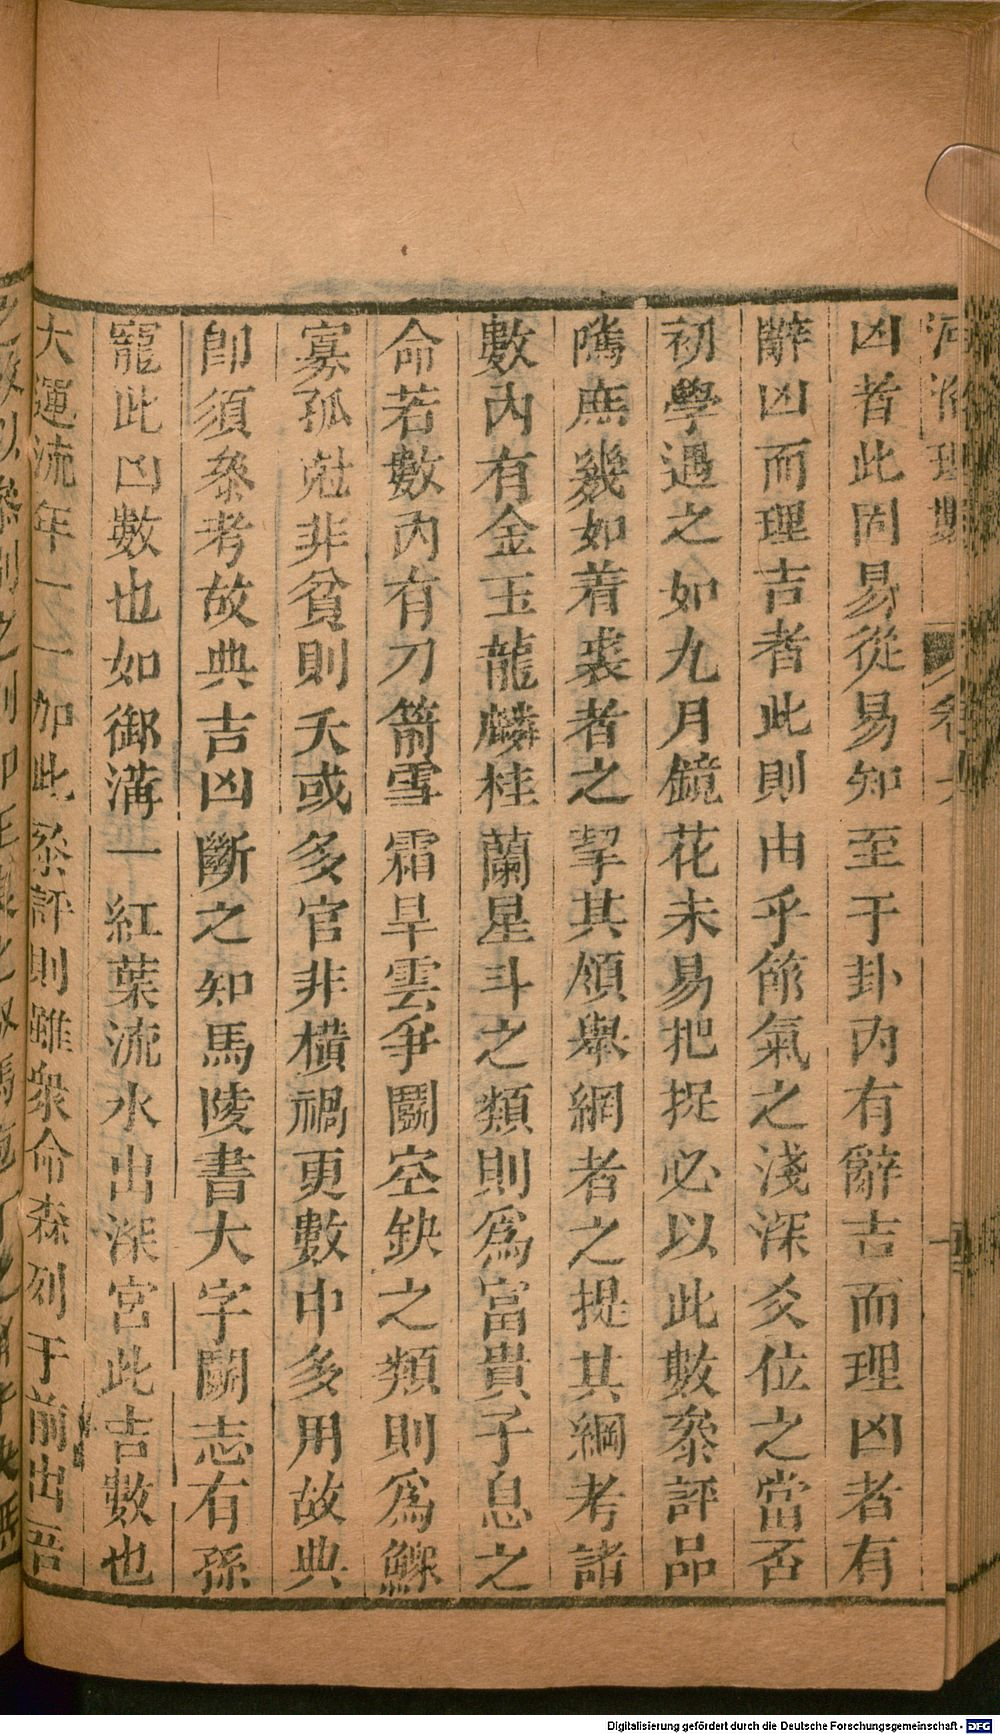 河洛理數
凶者此固易從易知至于卦內有辭吉而理凶者有
辭凶而理吉者此則由乎節氣之淺深爻位之當否
初學遇之如九月鏡花未易把捉必以此數叅評品
隲庶幾如着裘者之挈其領舉網者之提其綱考諸
數內有金玉龍麟桂蘭星斗之類則爲富貴子息之
命若數內有刀箭雪霜旱雲爭鬭空缺之類則爲鰥
寡孤尅非貧則夭或多官非橫禍更數中多用故典
卽須叅考故典吉凶斷之知馬陵書大字鬭志有孫
龐此凶數也如御溝一紅葉流水出深宮此吉數也
大運流年一一加此叅評則雖衆命森列于前出吾
Digitalisierung gefördert durch die Deutsche Forschungsgemeinschaft - DFG